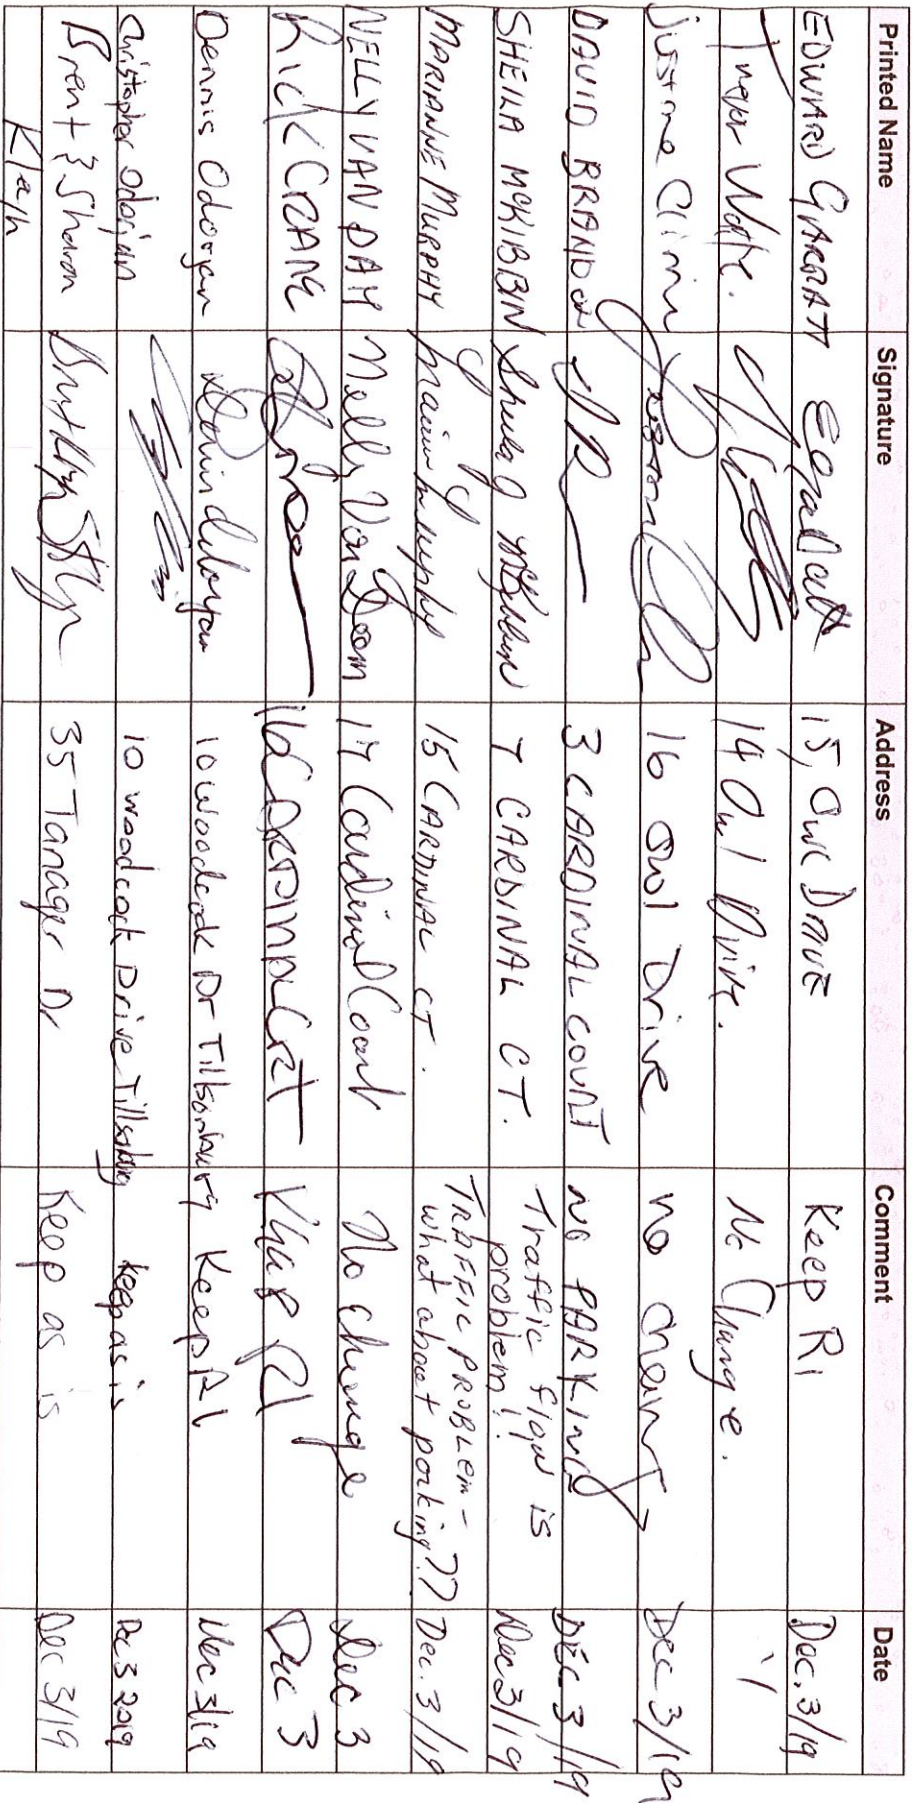 Printed Name Signature Address Comment Date
EDWARD GARRATT 15, OWL DRIVE Keep R1 Dec. 3/19
Trevor Waite. 14 Owl Drive. No Change. "
Justine 16 Owl Drive no change Dec 3/19
DAVID BRANDON 3 CARDINAL COURT NO PARKING DEC 3/19
SHEILA MCKIBBIN 7 CARDINAL CT. Traffic flow is
problem! Dec 3/19
MARIANNE MURPHY Marianne Murphy 15 CARDINAL CT. TRAFFIC PROBLEM -
what about parking?? Dec. 3/19
NELLY VAN DAM Nelly Van Dam 17 Cardinal Court No change Dec 3
RICK CRANE Dec 3
Dennis Odorjan 10 Woodcock Dr Tillsonburg Keep R1 Dec 3/19
Christopher Odorjan 10 woodcock Drive Tillsonburg keep as is Dec 3 2019
Brent & Sharon
Klein 35 Tanager Dr Keep as is Dec 3/19